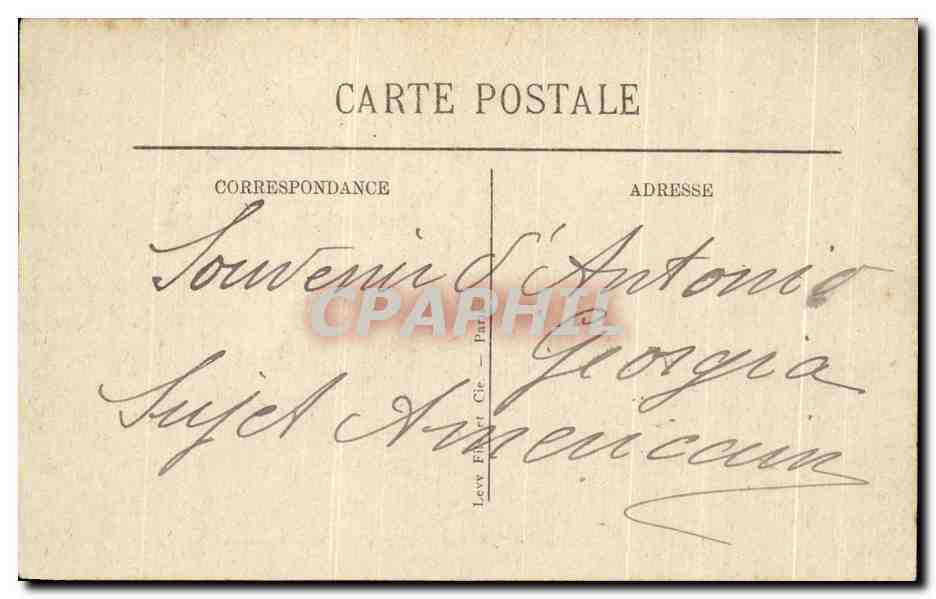 CARTE POSTALE
CORRESPONDANCE
ADRESSE
Souvenir d'Antonio
Georgia
Sujet Americain
CPAPHIL
Levy Fils et Cie. — Paris